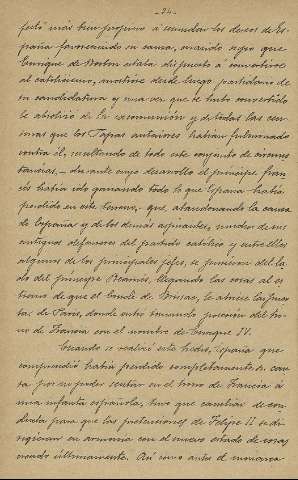 - 24 -
festó más bien propenso á secundar los deseos de Es-
paña favoreciendo su causa, cuando supo que
Enrique de Borbon estaba dispuesto á convertirse
al catolicismo, mostróse desde luego partidario de
su candidatura y una vez que se hubo convertido
le absolvió de la excomunión y de todas las cen-
suras que los Papas anteriores habian fulminado
contra él, resultando de todo este conjunto de circuns-
tancias, durante cuyo desarrollo el principe fran-
cés habia ido ganando todo lo que España habia
perdido en este terreno, que, abandonando la causa
de España y de los demás aspirantes, muchos de sus
antiguos defensores del partido católico y entre ellos
algunos de los principales jefes, se pusieran del la-
do del principe Bearnés, llegando las cosas al es-
tremo de que el Conde de Brissac, le abriese las puer-
tas de Paris, donde entró tomando posesión del tro-
no de Francia con el nombre de Enrique IV.
Cuando se realizó este hecho, España que
comprendió habia perdido completamente su cau-
sa por no poder sentar en el trono de Francia á
una infanta española, tuvo que cambiar de con-
ducta para que las pretensiones de Felipe II se di-
rigieran en armonia con el nuevo estado de cosas
creado últimamente. Asi como antes el monarca